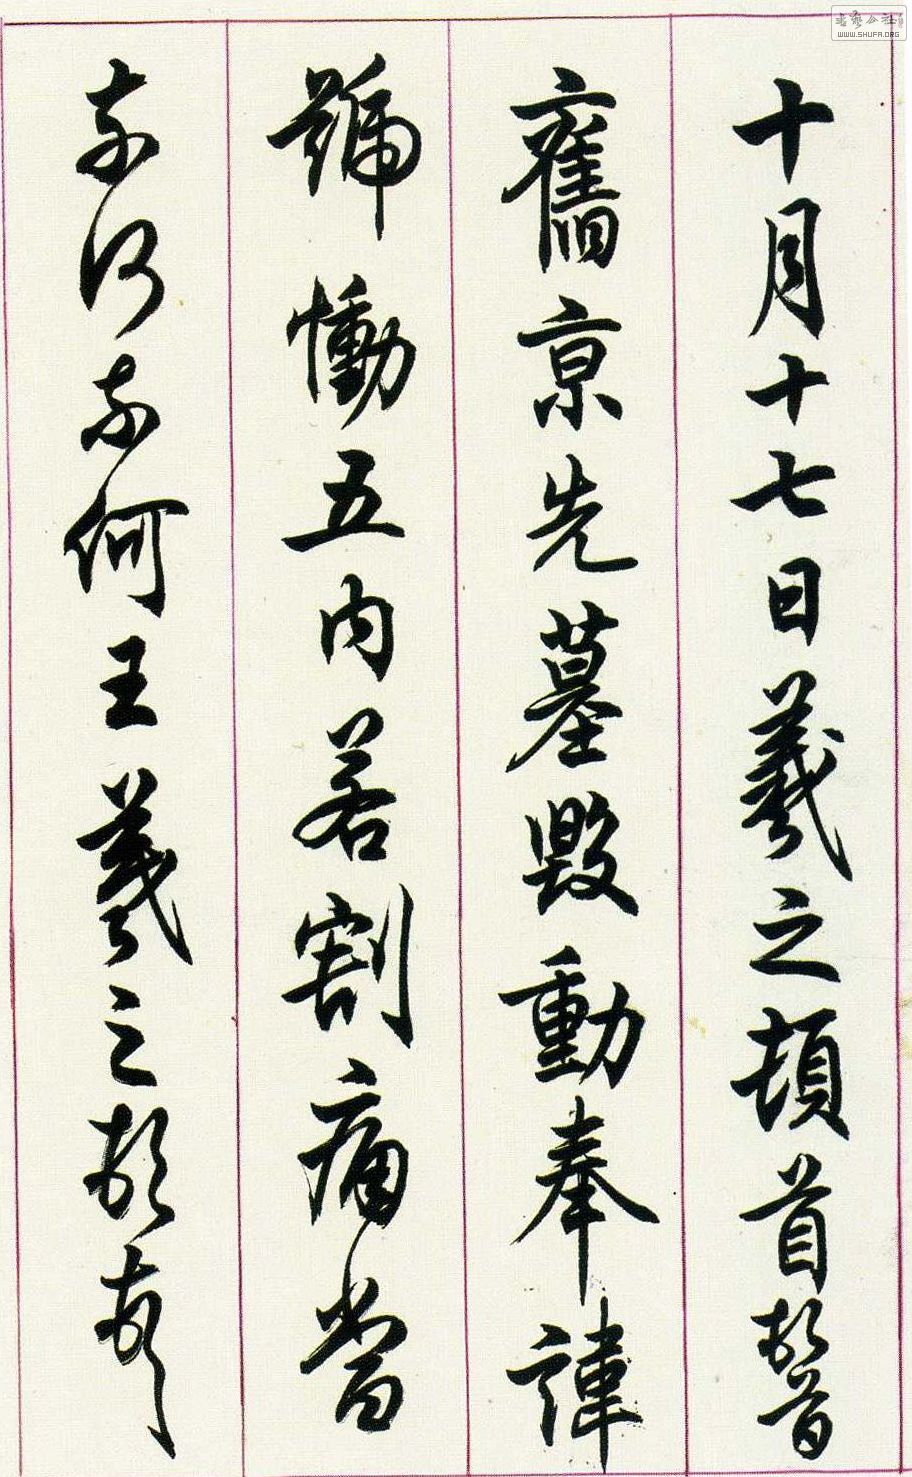 十月十七日羲之頓首頓首
舊京先墓毀動奉諱
號慟五內若割痛當
奈何奈何王羲之頓首
書藝公社
WWW.SHUFA.ORG